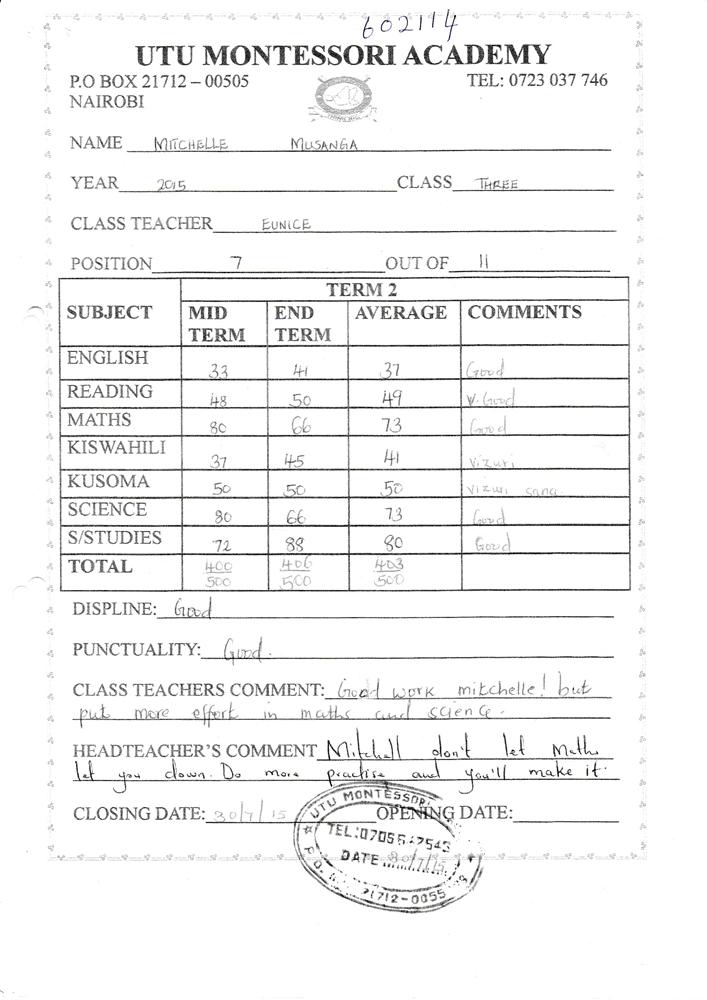 602114
UTU MONTESSORI ACADEMY
P.O BOX 21712 – 00505 TEL: 0723 037 746
NAIROBI
NAME MITCHELLE MUSANGA
YEAR 2015 CLASS THREE
CLASS TEACHER EUNICE
POSITION 7 OUT OF 11
TERM 2
SUBJECT MID TERM END TERM AVERAGE COMMENTS
ENGLISH 33 41 37 Good
READING 48 50 49 V. Good
MATHS 80 66 73 Good
KISWAHILI 37 45 41 Vizuri
KUSOMA 50 50 50 Vizuri sana
SCIENCE 80 66 73 Good
S/STUDIES 72 88 80 Good
TOTAL 400 406 403
500 500 500
DISPLINE: Good
PUNCTUALITY: Good.
CLASS TEACHERS COMMENT: Good work mitchelle! but
put more effort in maths and science.
HEADTEACHER'S COMMENT Mitchell don't let Maths
let you down. Do more practise and you'll make it.
CLOSING DATE: 30/7/15 OPENING DATE:
UTU MONTESSORI
TEL:0705
DATE 30/7/15
21712-0055